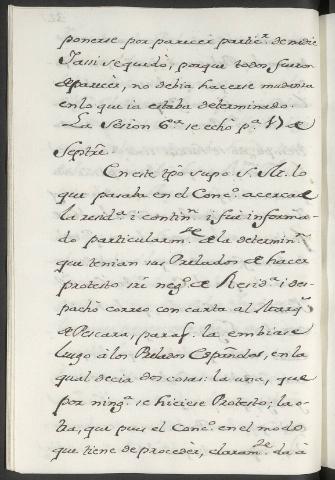 ponerse por parecer partic.r de nadie
I assi seguido, porque todos fueron
de parecèr, no debia hacerse mudanza
en lo que ia estaba determinado.
La Sesion 6.a se echò p.a 17 de
Septre.
En este tpo supo S. M. lo
que pasaba en el Conc.o acerca de
la resid.a i contin.n i fue informa-
do particularm.te de la determin.n
que tenian sus Prelados de hacer
protesto si neg.o de Resid.a i des-
pachò correo con carta al Marq.s
de Pescara, para q. la embiase
luego à los Prelados Españoles, en la
qual decia dos cosas: la una, que
por ning.a se hiciese Protesto; la o-
tra, que pues el Conc.o en el modo
que tiene de procedèr, claram.te da à